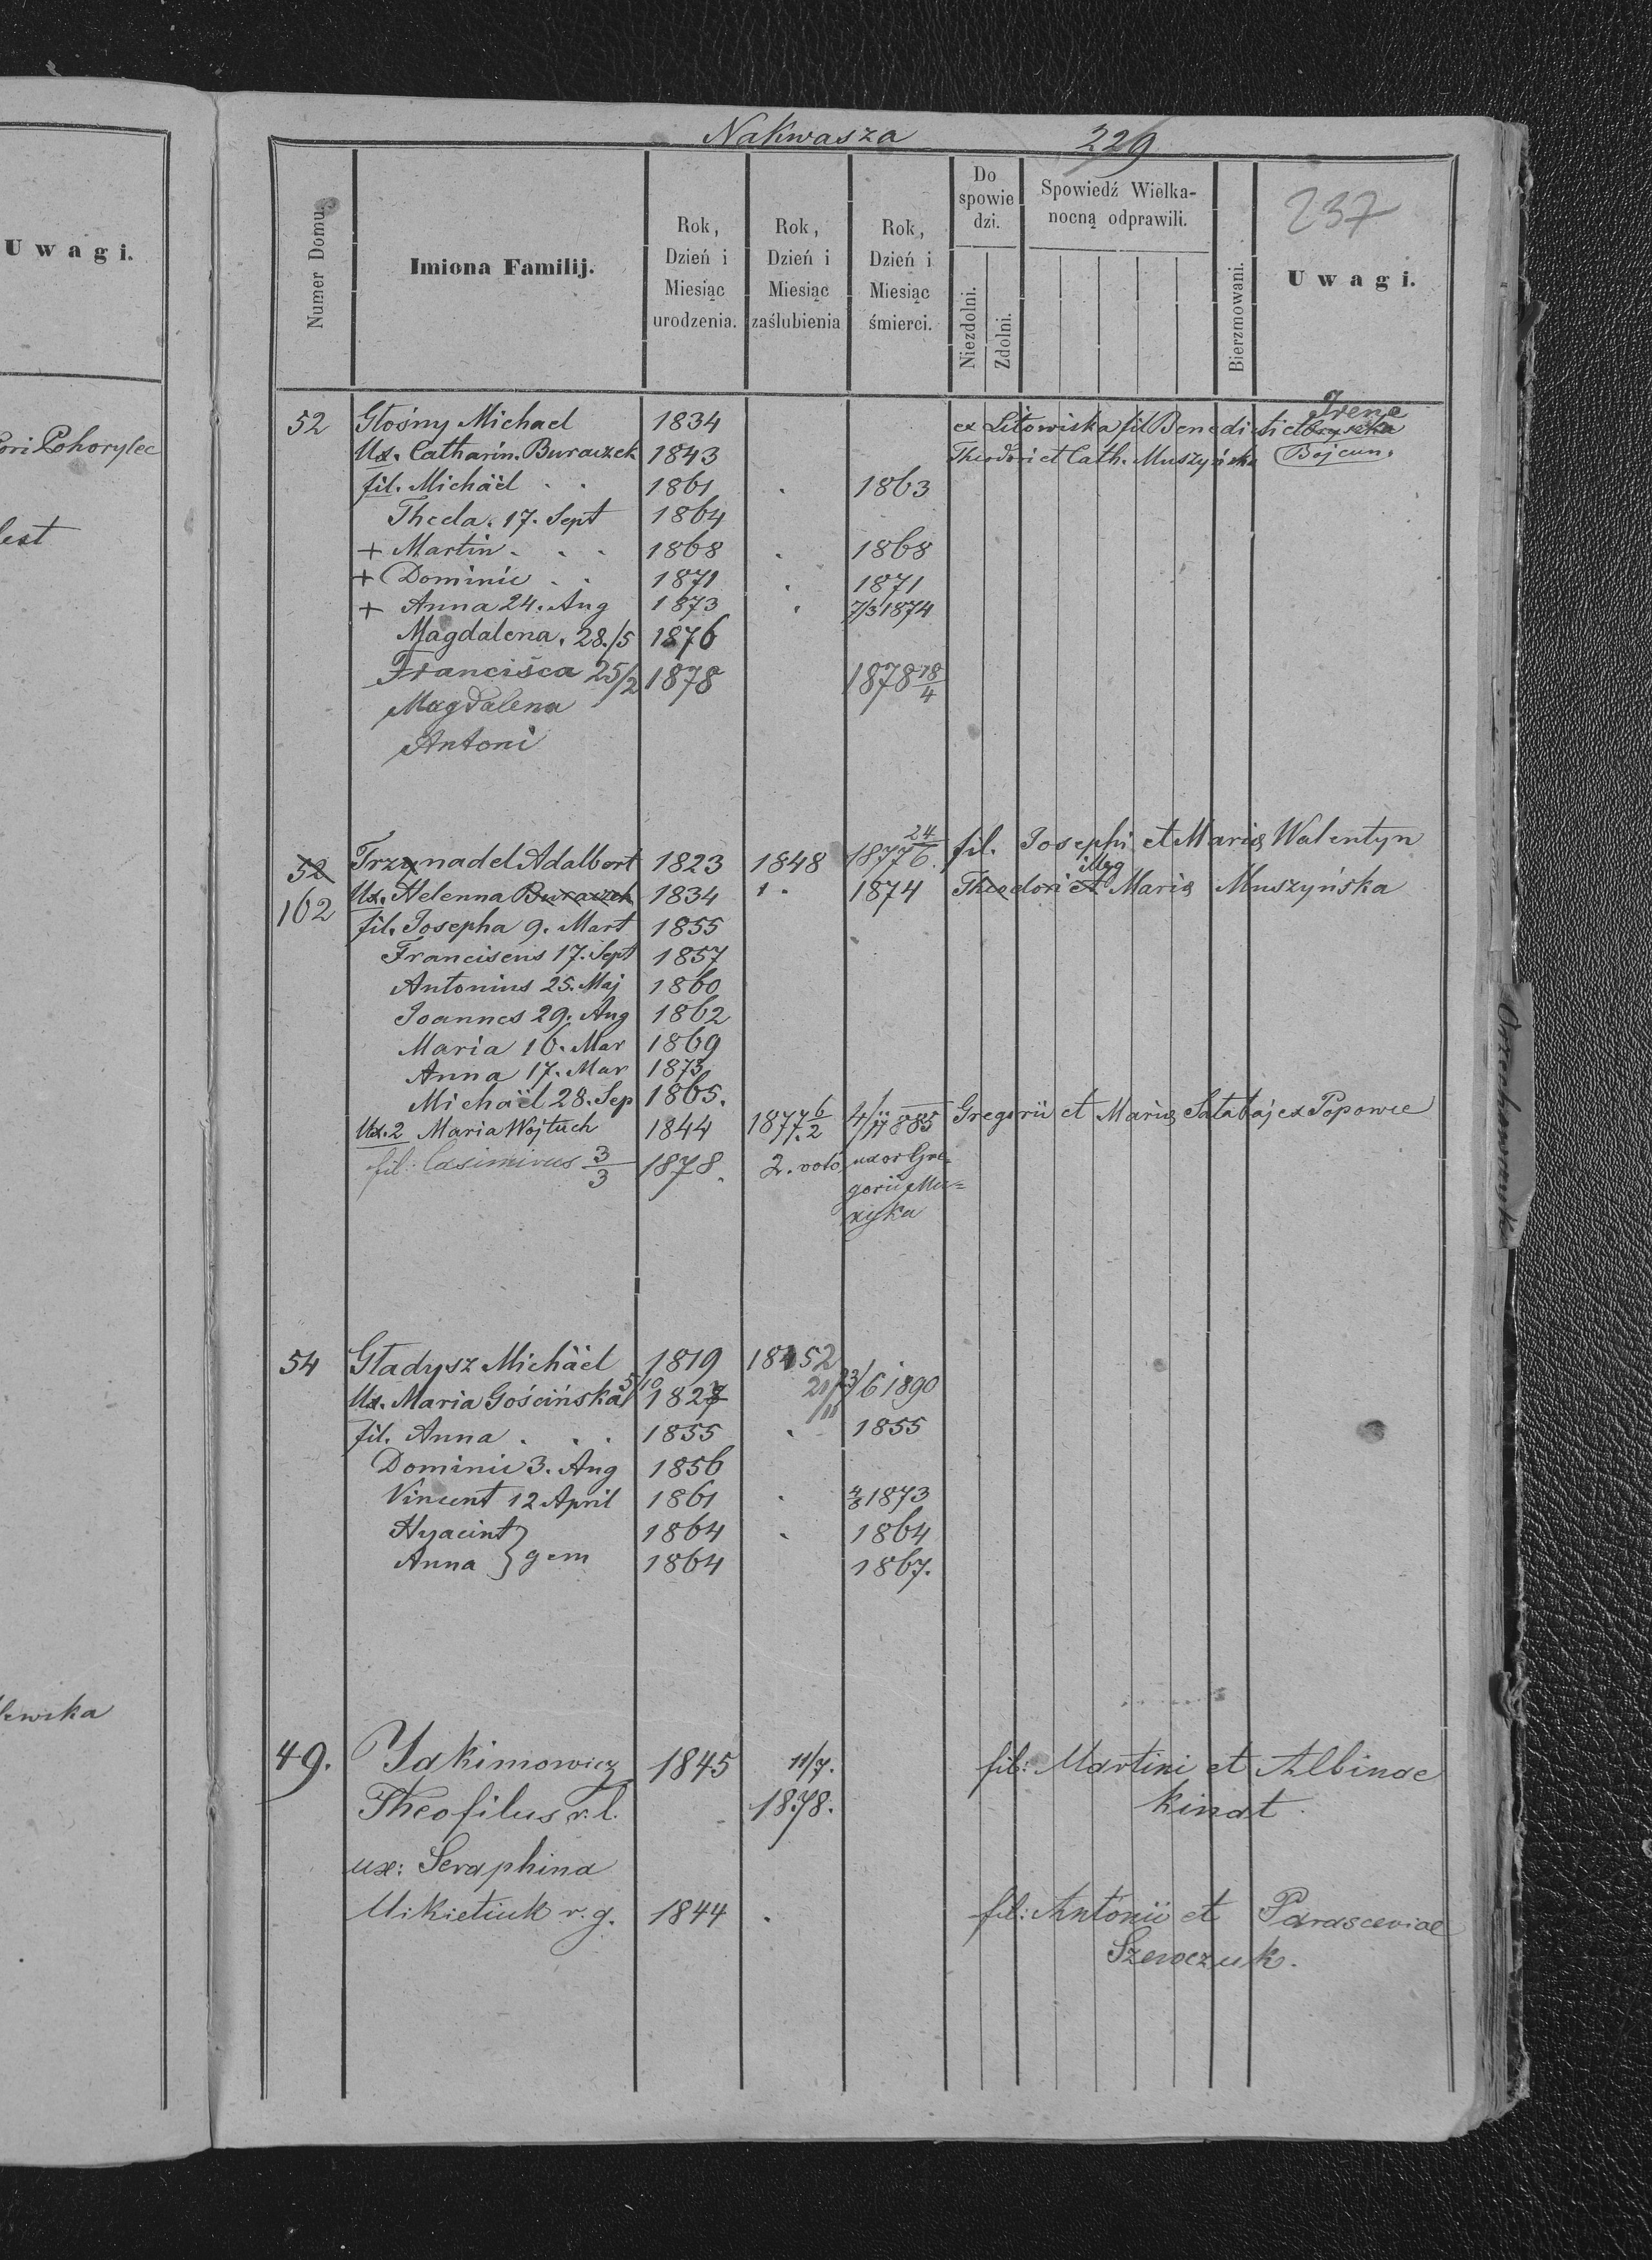 Nakwasza 229
237
Numer Domu.
Imiona Familij.
Rok, Dzień i Miesiąc urodzenia.
Rok, Dzień i Miesiąc zaślubienia
Rok, Dzień i Miesiąc śmierci.
Do spowie dzi.
Niezdolni.
Zdolni.
Spowiedź Wielka- nocną odprawili.
Bierzmowani.
Uwagi.
Uwagi.
ori Pohorylec
52 Głośny Michael 1834 ex Litowiska fil Benedicti et Irene
Ux. Catharin. Buraczek 1843 Theodori et Cath. Muszyńska Bojcun.
fil. Michäel . . 1861 . 1863
Thecla. 17. Sept 1864
+ Martin . . . 1868 . 1868
+ Dominic . . 1871 . 1871
+ Anna 24. Aug 1873 . 7/3 1874
Magdalena. 28./5 1876
Francisca 25/2 1878 1878 18/4
Magdalena
Antoni
52 Trzynadel Adalbert 1823 1848 1877 24/6. fil. Josephi et Maria Walentyn
102 Ux. Helenna Buraczek 1834 1 . 1874 Theodori et illeg Maria Muszyńska
fil. Josepha 9. Mart 1855
Franciscus 17. Sept 1857
Antonius 25. Maj 1860
Joannes 29. Aug 1862
Maria 16. Mar 1869
Anna 17. Mar 1873
Michäel 28. Sep 1865.
Ux. 2 Maria Wojtuch 1844 1877 6/2 4/11 885 Gregorii et Maria Sałabaj ex Popowce
fil: Casimirus 3/3 1878. 2. voto uxor Gre-
gorii Mu=
zyka
54 Gładysz Michäel 1819 1852
Ux. Maria Gościńska 5/10 1827 21/11 23/6 1890
fil. Anna . . . 1855 . 1855
Dominic 3. Aug 1856
Vincent 12 April 1861 . 4/8 1873
Hyacint } gem 1864 . 1864
Anna 1864 1867.
49. Jakimowicz 1845 11/7. fil: Martini et Albinae
Theofilus r. l. 1878. Kinat.
ux: Seraphina
Mikietiuk r. g. 1844 . fil: Antonii et Parasceviae
Szewczuk.
Orzechowczyk